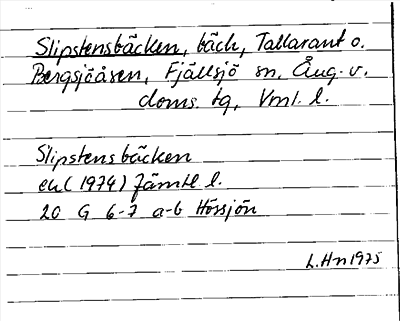 Slipstensbäcken, bäck, Tallarant o.
Bergsjöåsen, Fjällsjö sn, Ång. v.
doms. tg, Vnl. l.
Slipstensbäcken
ek (1974) Jämtl. l.
20 G 6-7 a-b Hössjön
L. Hn 1975